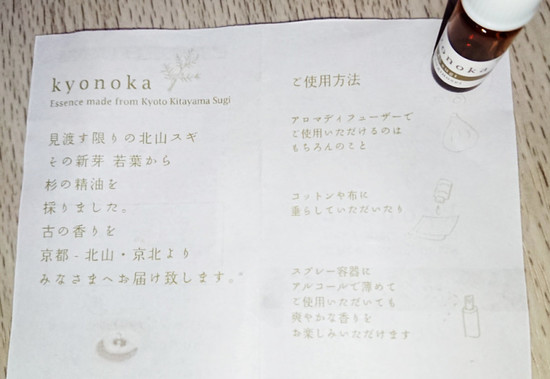 kyonoka
Essence made from Kyoto Kitayama Sugi
見渡す限りの北山スギ
その新芽 若葉から
杉の精油を
採りました。
古の香りを
京都 - 北山・京北より
みなさまへお届け致します。
ご使用方法
アロマディフューザーで
ご使用いただけるのは
もちろんのこと
コットンや布に
垂らしていただいたり
スプレー容器に
アルコールで薄めて
ご使用いただいても
爽やかな香りを
お楽しみいただけます
onoka